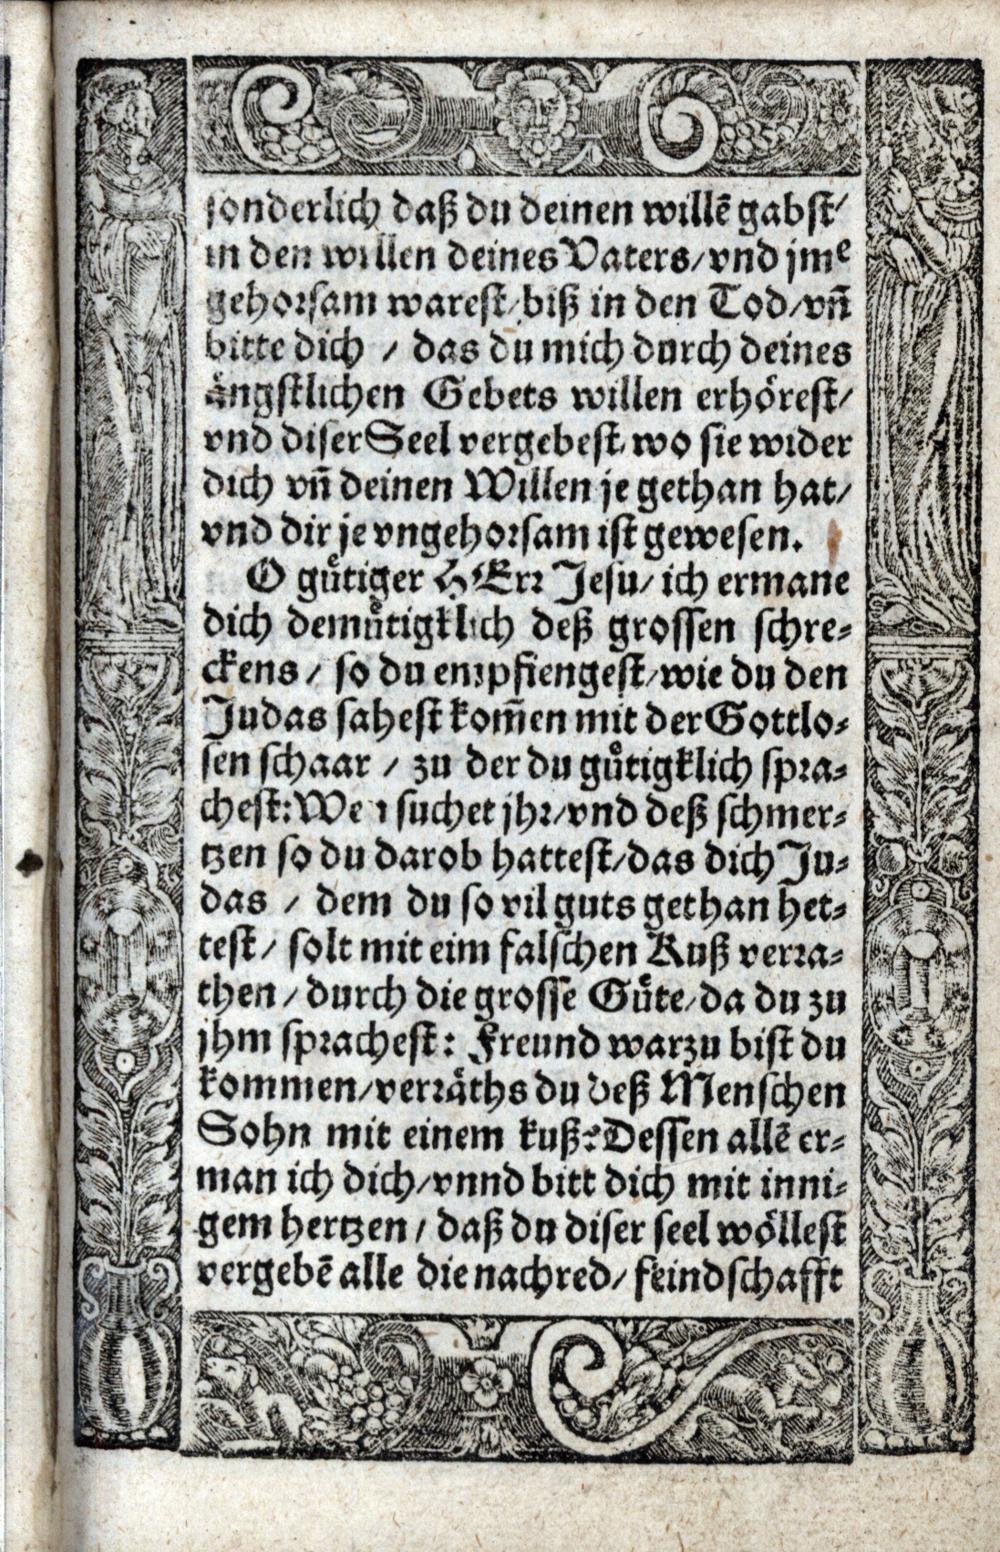 sonderlich daß du deinen willē gabst/
in den willen deines Vaters/vnd jmͤ
gehorsam warest/biß in den Tod/vñ
bitte dich / das du mich durch deines
ångstlichen Gebets willen erhörest/
vnd diser Seel vergebest/wo sie wider
dich vñ deinen Willen je gethan hat/
vnd dir je vngehorsam ist gewesen.
O gůtiger HErr Jesu/ ich ermane
dich demůtigklich deß grossen schre⸗
ckens / so du empfiengest/wie du den
Judas sahest kom̄en mit der Gottlo⸗
sen schaar / zu der du gůtigklich spra⸗
chest: Wen suchet jhr/vnd deß schmer⸗
tzen so du darob hattest/das dich Ju⸗
das / dem du so vil guts gethan het⸗
test/ solt mit eim falschen Kuß verra⸗
then / durch die grosse Gůte/da du zu
jhm sprachest: Freund warzu bist du
kommen/verräths du deß Menschen
Sohn mit einem kuß? Dessen allē er⸗
man ich dich/vnnd bitt dich mit inni⸗
gem hertzen / daß du diser seel wöllest
vergebē alle die nachred/ feindschafft